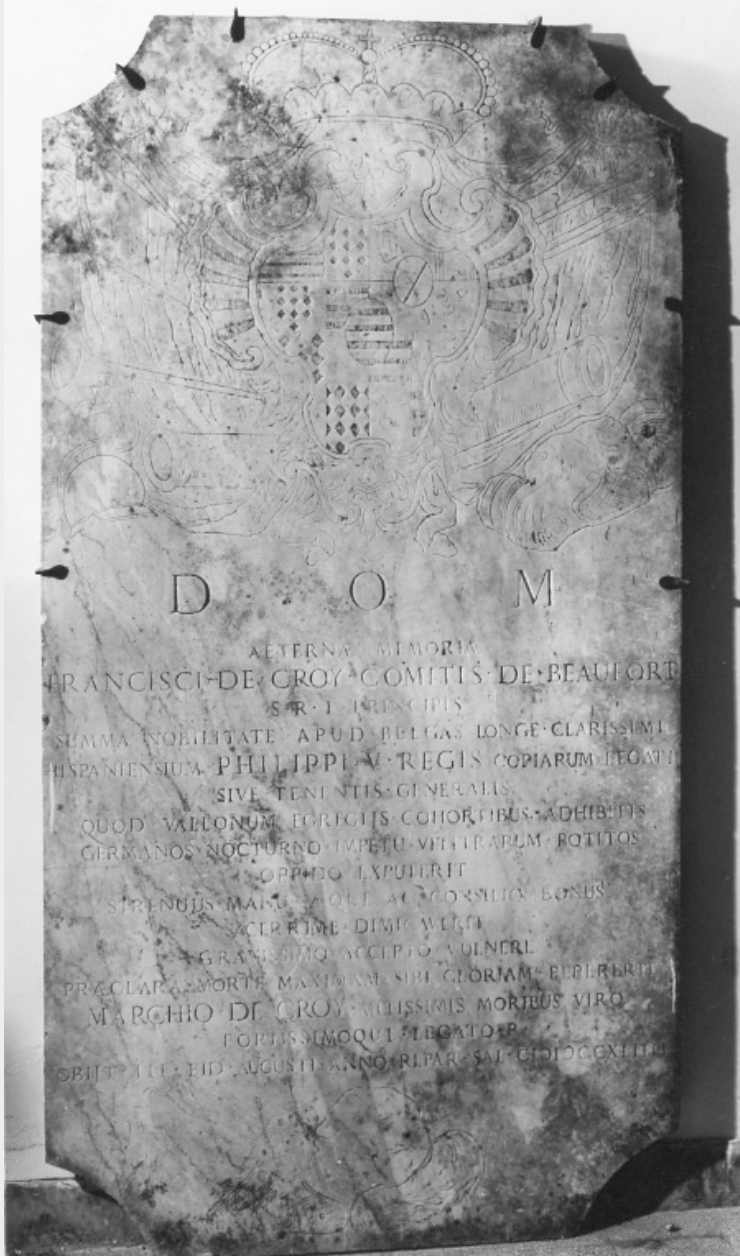 D O M
AETERNÆ MEMORIÆ
FRANCISCI·DE·CROY·COMITIS·DE·BEAUFORT
S·R·I·PRINCIPIS
SUMMA·NOBILITATE·APUD·BELGAS·LONGE·CLARISSIMI
HISPANIENSIUM·PHILIPPI·V·REGIS·COPIARUM·LEGATI
SIVE·TENENTIS·GENERALIS
QUOD·VALLONUM·EGREGIJS·COHORTIBUS·ADHIBITIS
GERMANOS·NOCTURNO·IMPETU·VELITRARUM·POTITOS
OPPIDO·EXPULERIT
STRENUUS·MANU AC·CONSILIO·BONUS
ACERRIME·DIMICAVERIT
GRAVISSIMO·ACCEPTO·VULNERE
PRÆCLARA·MORTE·MAXIMAM·SIBI·GLORIAM·PEPERERIT
MARCHIO·DE·CROY·MITISSIMIS·MORIBUS·VIRO
FORTISSIMOQUE·LEGATO·P·
OBIJT·III·EID·AUGUSTI·ANNO·REPAR·SAL·